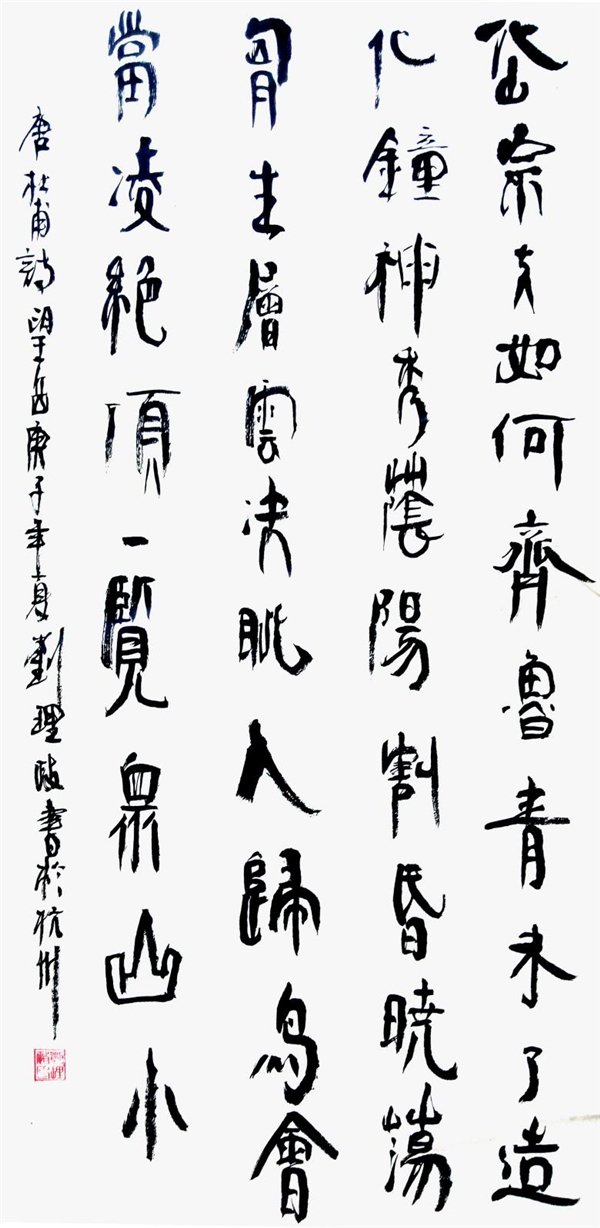 岱宗夫如何齊魯青未了造
化鐘神秀蔭陽割昏曉蕩
胷生層雲决眦入歸鳥會
當凌絕頂一覽眾山小
唐杜甫詩望岳庚子年夏劉理書於杭州